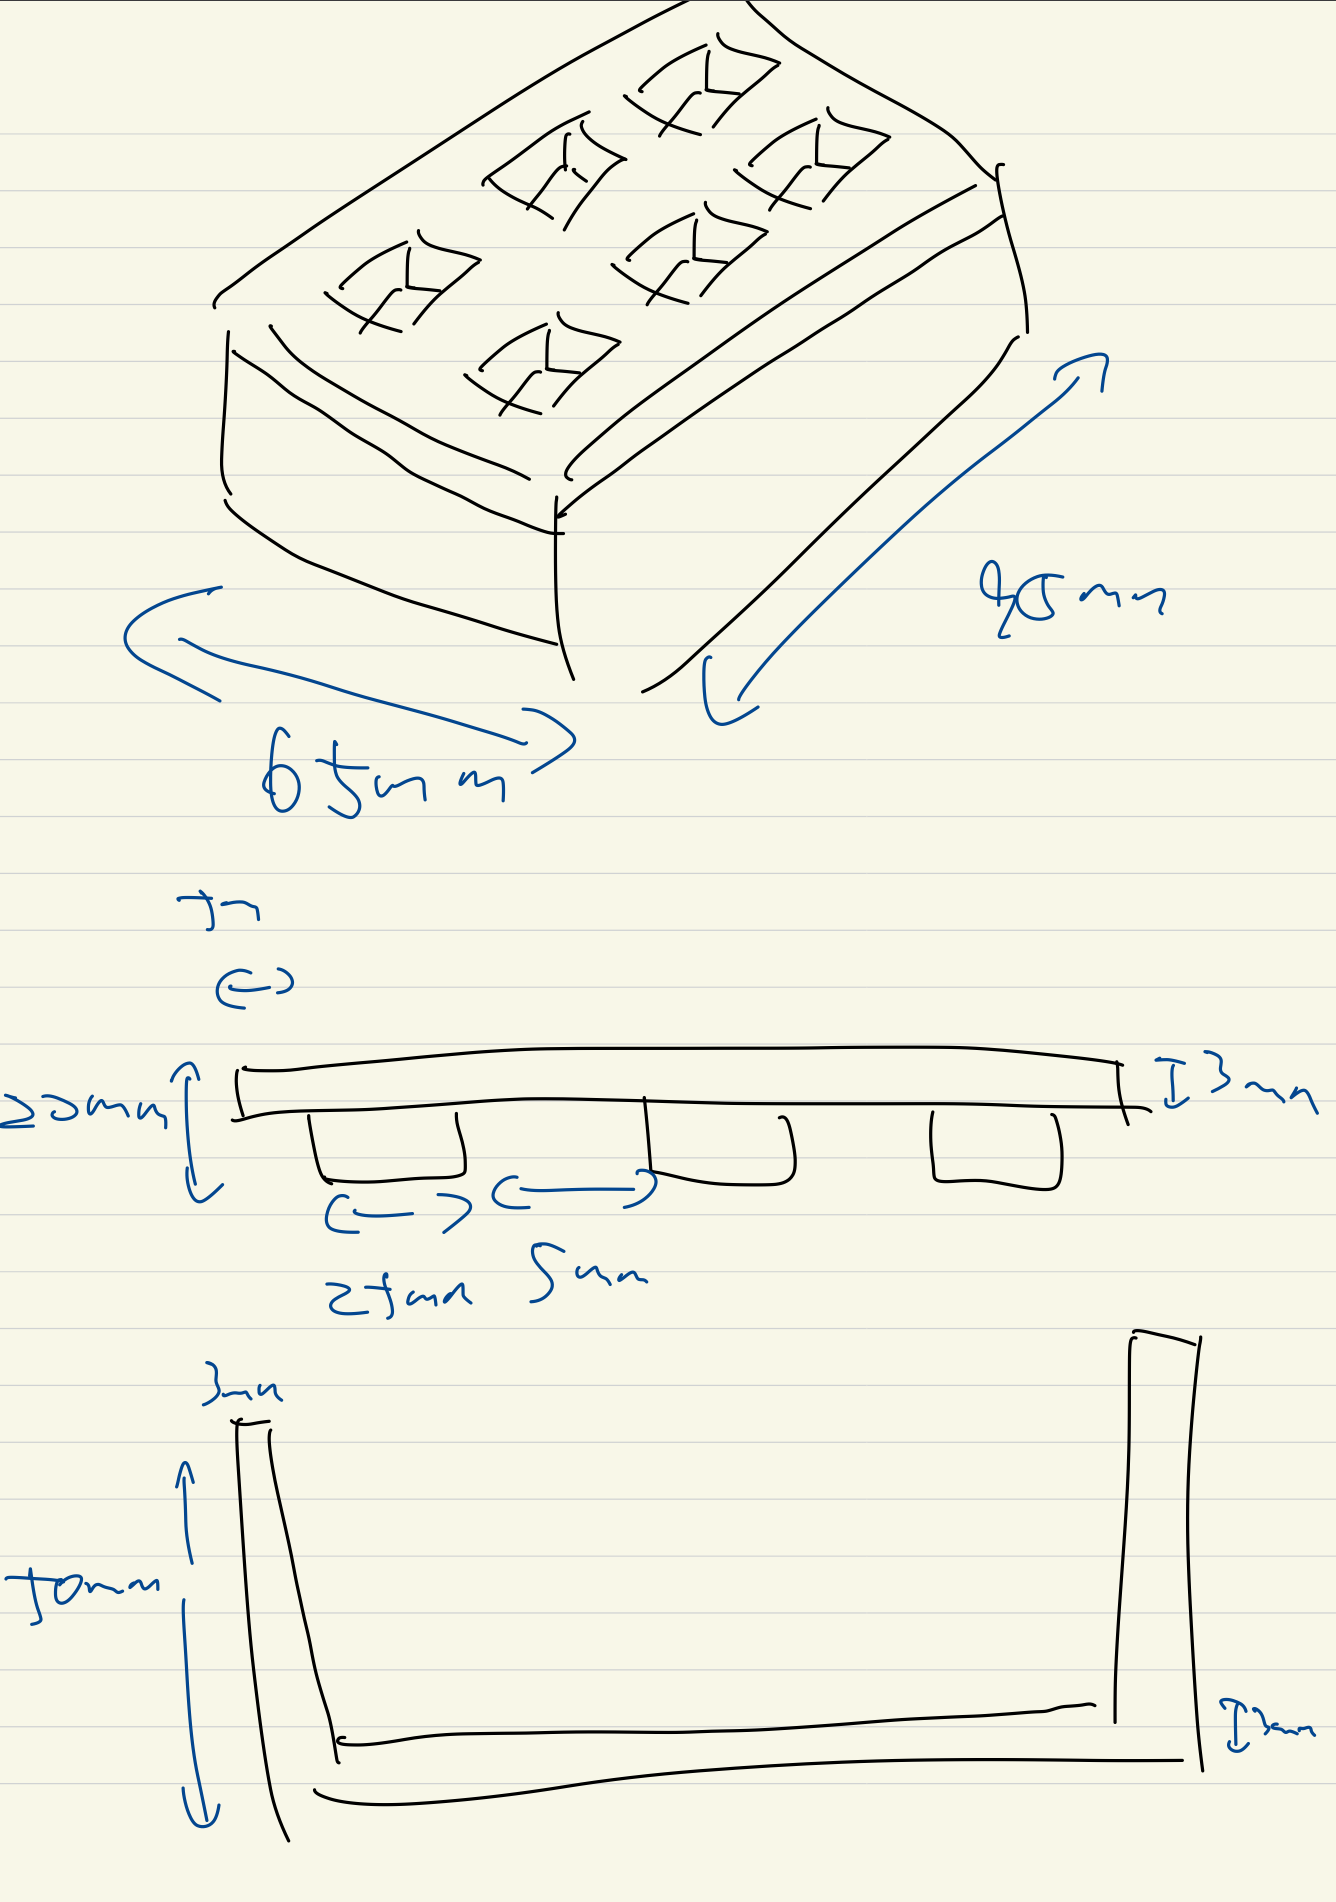 95mm
65mm
5m
20mm
3mm
25mm 5mm
3mm
50mm
3mm